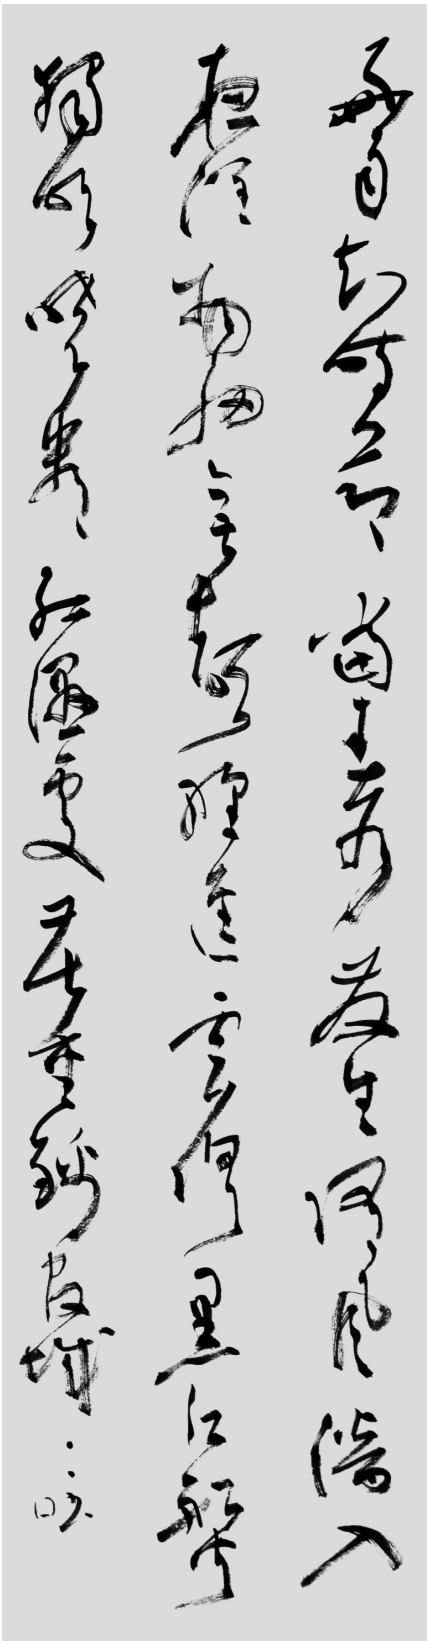 好雨知時節當春乃發生隨風潛入
夜潤物細無聲野徑雲俱黑江船火
獨明曉看紅濕處花重錦官城